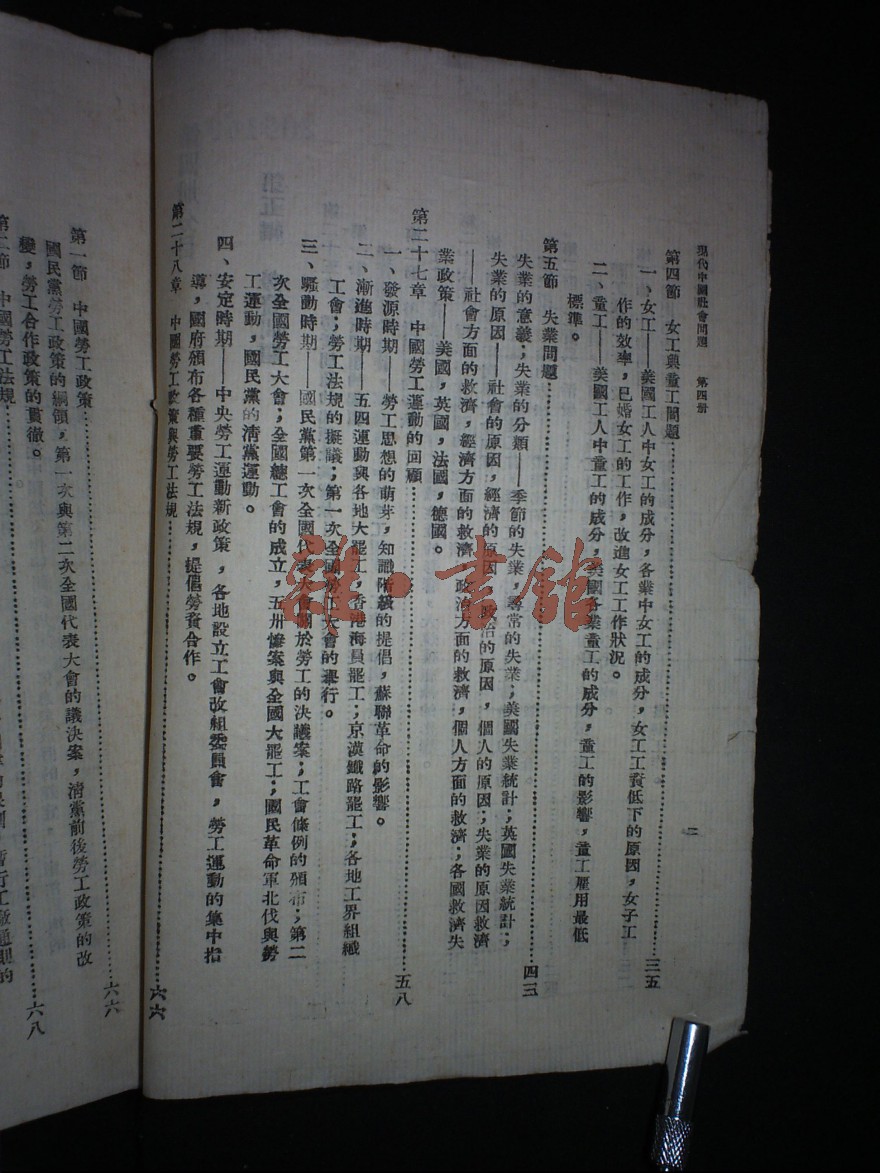 現代中國社會問題　第四册
二
第四節　女工與童工問題……三五
一、女工——美國工人中女工的成分，各業中女工的成分，女工工資低下的原因，女子工
作的效率，已婚女工的工作，改進女工工作狀況。
二、童工——美國工人中童工的成分，美國各業童工的成分，童工的影響，童工雇用最低
標準。
第五節　失業問題……四三
失業的意義；失業的分類——季節的失業，尋常的失業；美國失業統計；英國失業統計；
失業的原因——社會的原因，經濟的原因，政治的原因，個人的原因；失業的原因救濟
——社會方面的救濟，經濟方面的救濟，政治方面的救濟，個人方面的救濟；各國救濟失
業政策——美國，英國，法國，德國。
第二十七章　中國勞工運動的回顧……五八
一、發源時期——勞工思想的萌芽，知識階級的提倡，蘇聯革命的影響。
二、漸進時期——五四運動與各地大罷工，香港海員罷工；京漢鐵路罷工；各地工界組織
工會；勞工法規的擬議；第一次全國勞工大會的舉行。
三、騷動時期——國民黨第一次全國代表大會關於勞工的決議案；工會條例的頒布；第二
次全國勞工大會；全國總工會的成立，五卅慘案與全國大罷工；國民革命軍北伐與勞
工運動，國民黨的清黨運動。
四、安定時期——中央勞工運動新政策，各地設立工會改組委員會，勞工運動的集中指
導，國府頒布各種重要勞工法規，提倡勞資合作。
第二十八章　中國勞工政策與勞工法規……六六
第一節　中國勞工政策……六六
國民黨勞工政策的綱領，第一次與第二次全國代表大會的議決案，清黨前後勞工政策的改
變，勞工合作政策的貫徹。
第二節　中國勞工法規……六八
暫行工廠通則的
雜·書館